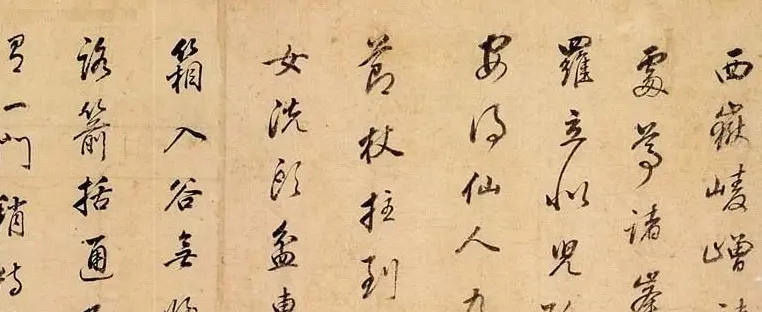 西嶽崚嶒
處尊諸峯
羅立似兒
安得仙人九
節杖拄到
女洗頭盆車
箱入谷無歸
路箭括通
有一門稍待